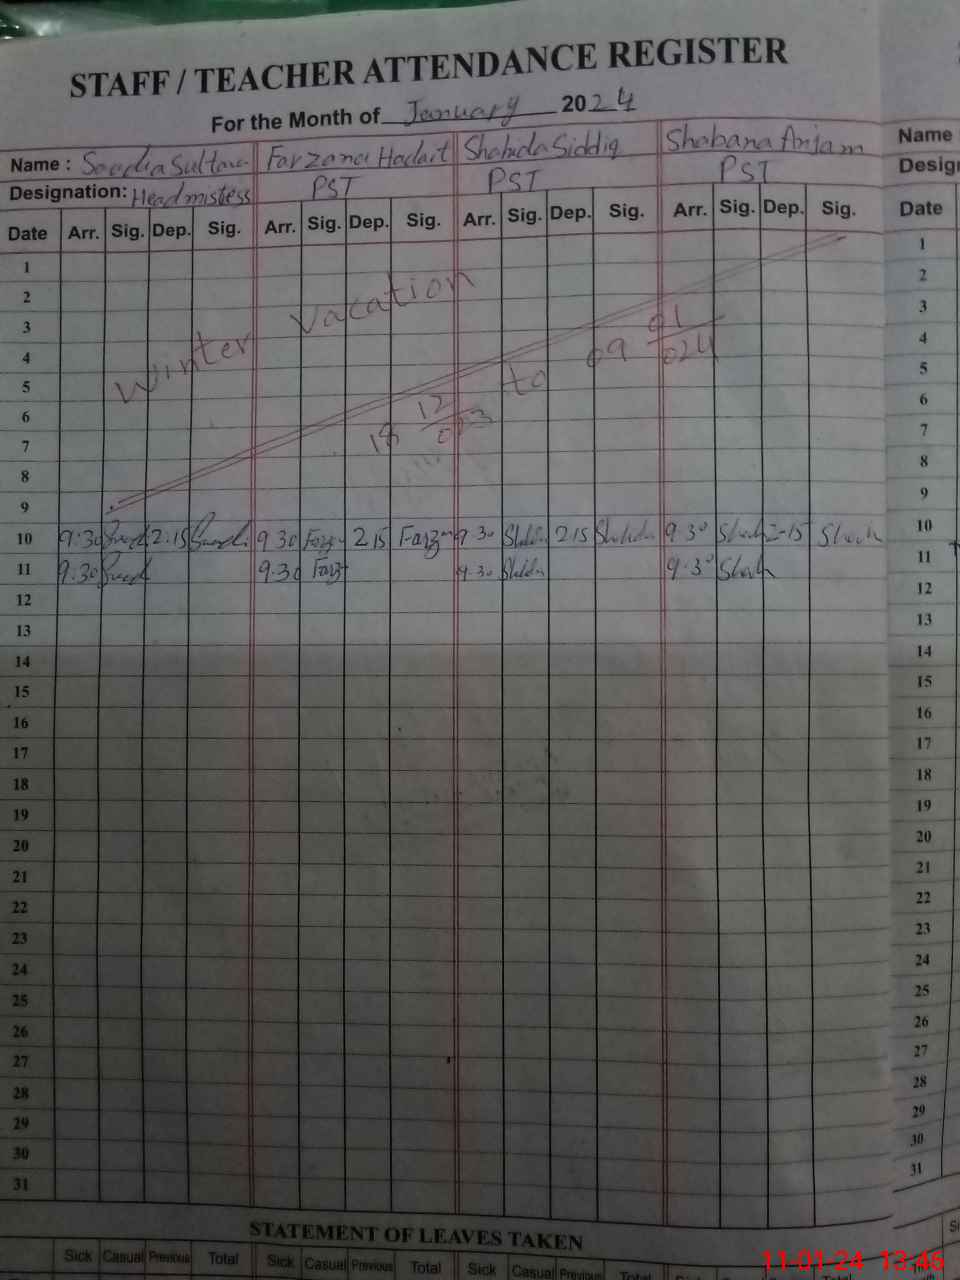 STAFF / TEACHER ATTENDANCE REGISTER
For the Month of January 2024
Name : Saadia Sultana Farzana Hadait Shahida Siddiq Shabana Anjam Name
Designation: Headmistess PST PST PST Desig
Date Arr. Sig. Dep. Sig. Arr. Sig. Dep. Sig. Arr. Sig. Dep. Sig. Arr. Sig. Dep. Sig. Date
1 1
2 2
3 3
4 4
5 5
6 6
7 7
8 8
9 9
Winter Vacation
18 12/023 to 09 01/024
10 9:30 2:15 9 30 Farz 2 15 Farz 9 30 2 15 9.30 Shah 2-15 Shah 10
11 9:30 9:30 Farz 9.30 9.30 Shah 11
12 12
13 13
14 14
15 15
16 16
17 17
18 18
19 19
20 20
21 21
22 22
23 23
24 24
25 25
26 26
27 27
28 28
29 29
30 30
31 31
STATEMENT OF LEAVES TAKEN
Sick Casual Previous Total Sick Casual Previous Total Sick Casual Previous Total Sick Casual Previous Total
11-01-24 13:46